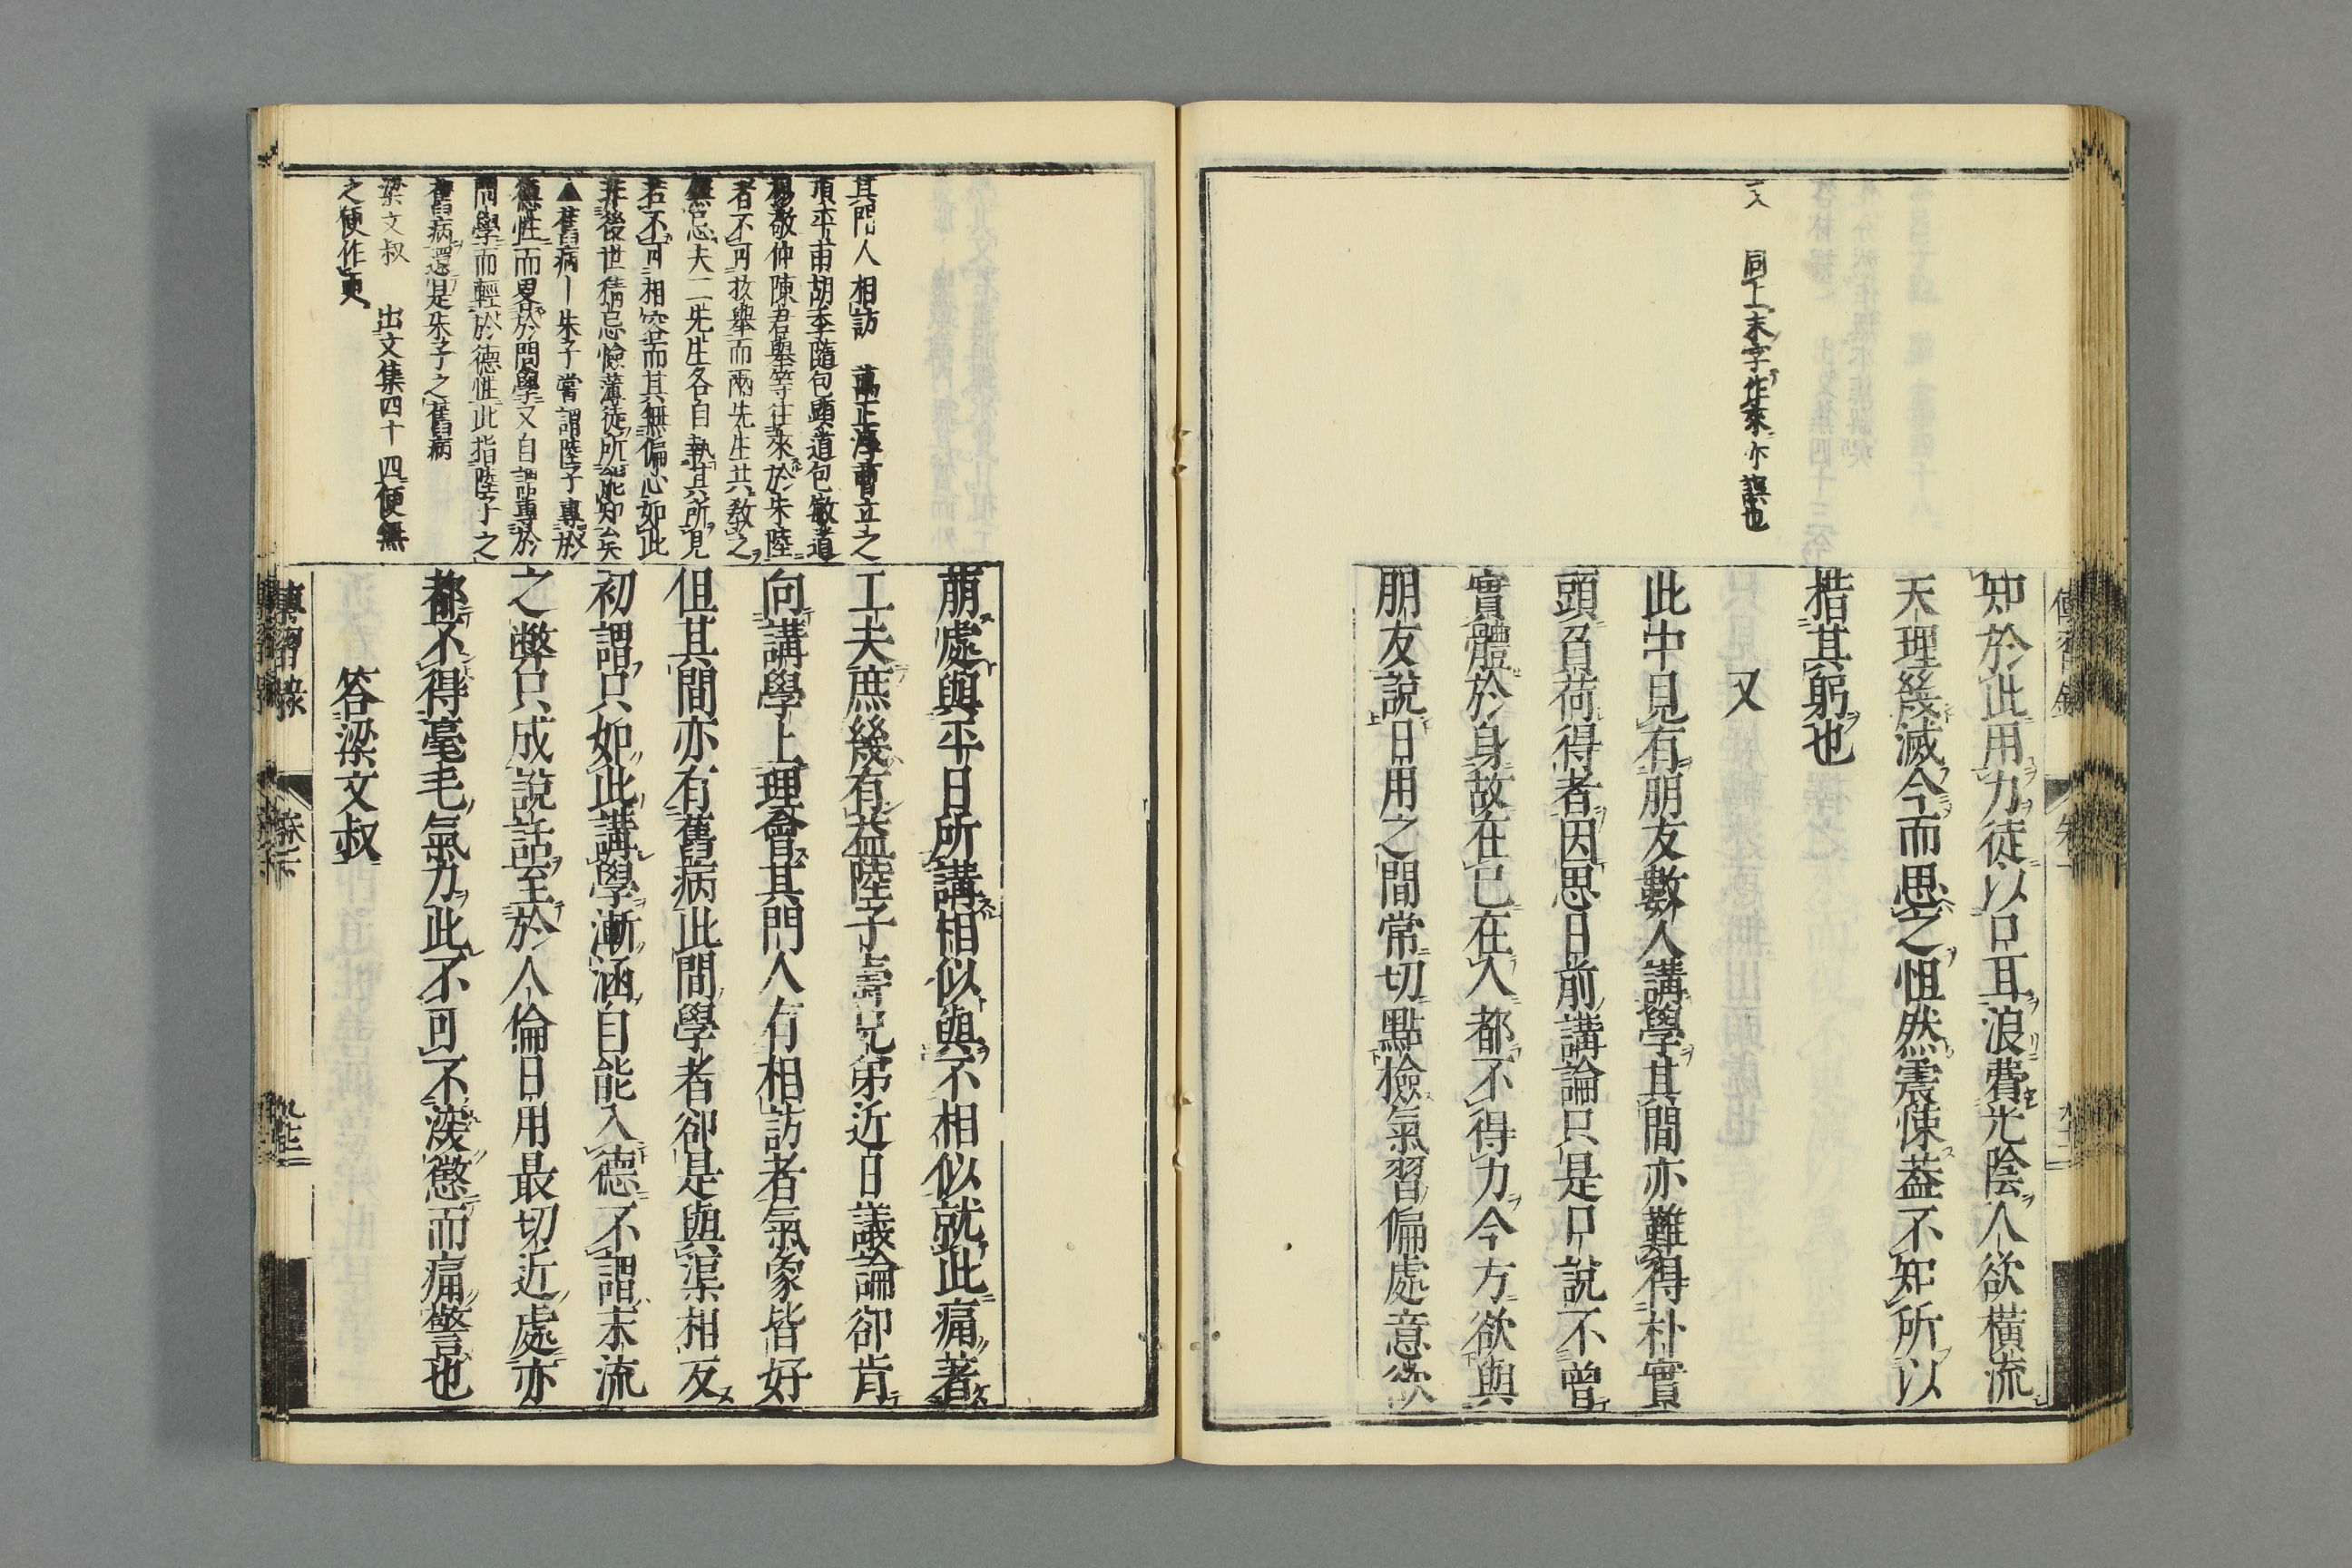 又　同上末字作來亦誤也
知於此用力徒以口耳浪費光陰人欲橫流
天理幾滅今而思之怛然震悚葢不知所以
措其躬也
又
此中見有朋友數人講學其間亦難得朴實
頭負荷得者因思日前講論只是口說不曾
實體於身故在已在人都不得力今方欲與
朋友說日用之間常切點檢氣習偏處意欲
其門人相訪　萬正淳曹立之
項平甫胡季隨包顕道包敏道
楊敬仲陳君舉等往來於朱陸
者不可枚舉而兩先生共教之
無忌夫二先生各自執其所見
若不可相容而其無偏心如此
非後世猜忌憸薄徒所能知矣
▲舊病〡朱子嘗謂陸子專於
德性而畧於問學又自謂專於
問學而輕於德性此指陸子之
舊病還是朱子之舊病
梁文叔　出文集四十四便無
之便作更
萠處與平日所講相似與不相似就此痛著
工夫庶幾有益陸子壽兄弟近日議論卻肯
向講學上理會其門人有相訪者氣象皆好
但其間亦有舊病此間學者卻是與渠相反
初謂只如此講學漸涵自能入德不謂末流
之弊只成說話至於人倫日用最切近處亦
都不得毫毛氣力此不可不深懲而痛警也
答梁文叔